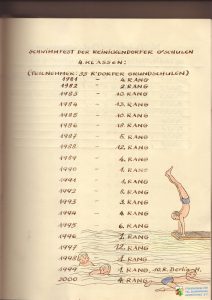 SCHWIMMFEST DER REINICKENDORFER G'SCHULEN
4. KLASSEN:
(TEILNEHMER: 35 R'DORFER GRUNDSCHULEN)
1981 4. RANG
1982 - 2. RANG
1983 - 10. RANG
1984 - 13. RANG
1985 - 10. RANG
1986 - 10. RANG
1987 - RANG
1988 - 12. RANG
1989 - 4. RANG
1990 - 1. RANG
1991 - RANG
1992 - RANG
1993 - 3. RANG
1994 - 4. RANG
1995 - 6. RANG
1996 - RANG
1997 - 12. RANG
1998 RANG
1999 1. RANG 10.R. Berlin
2000 4. RANG